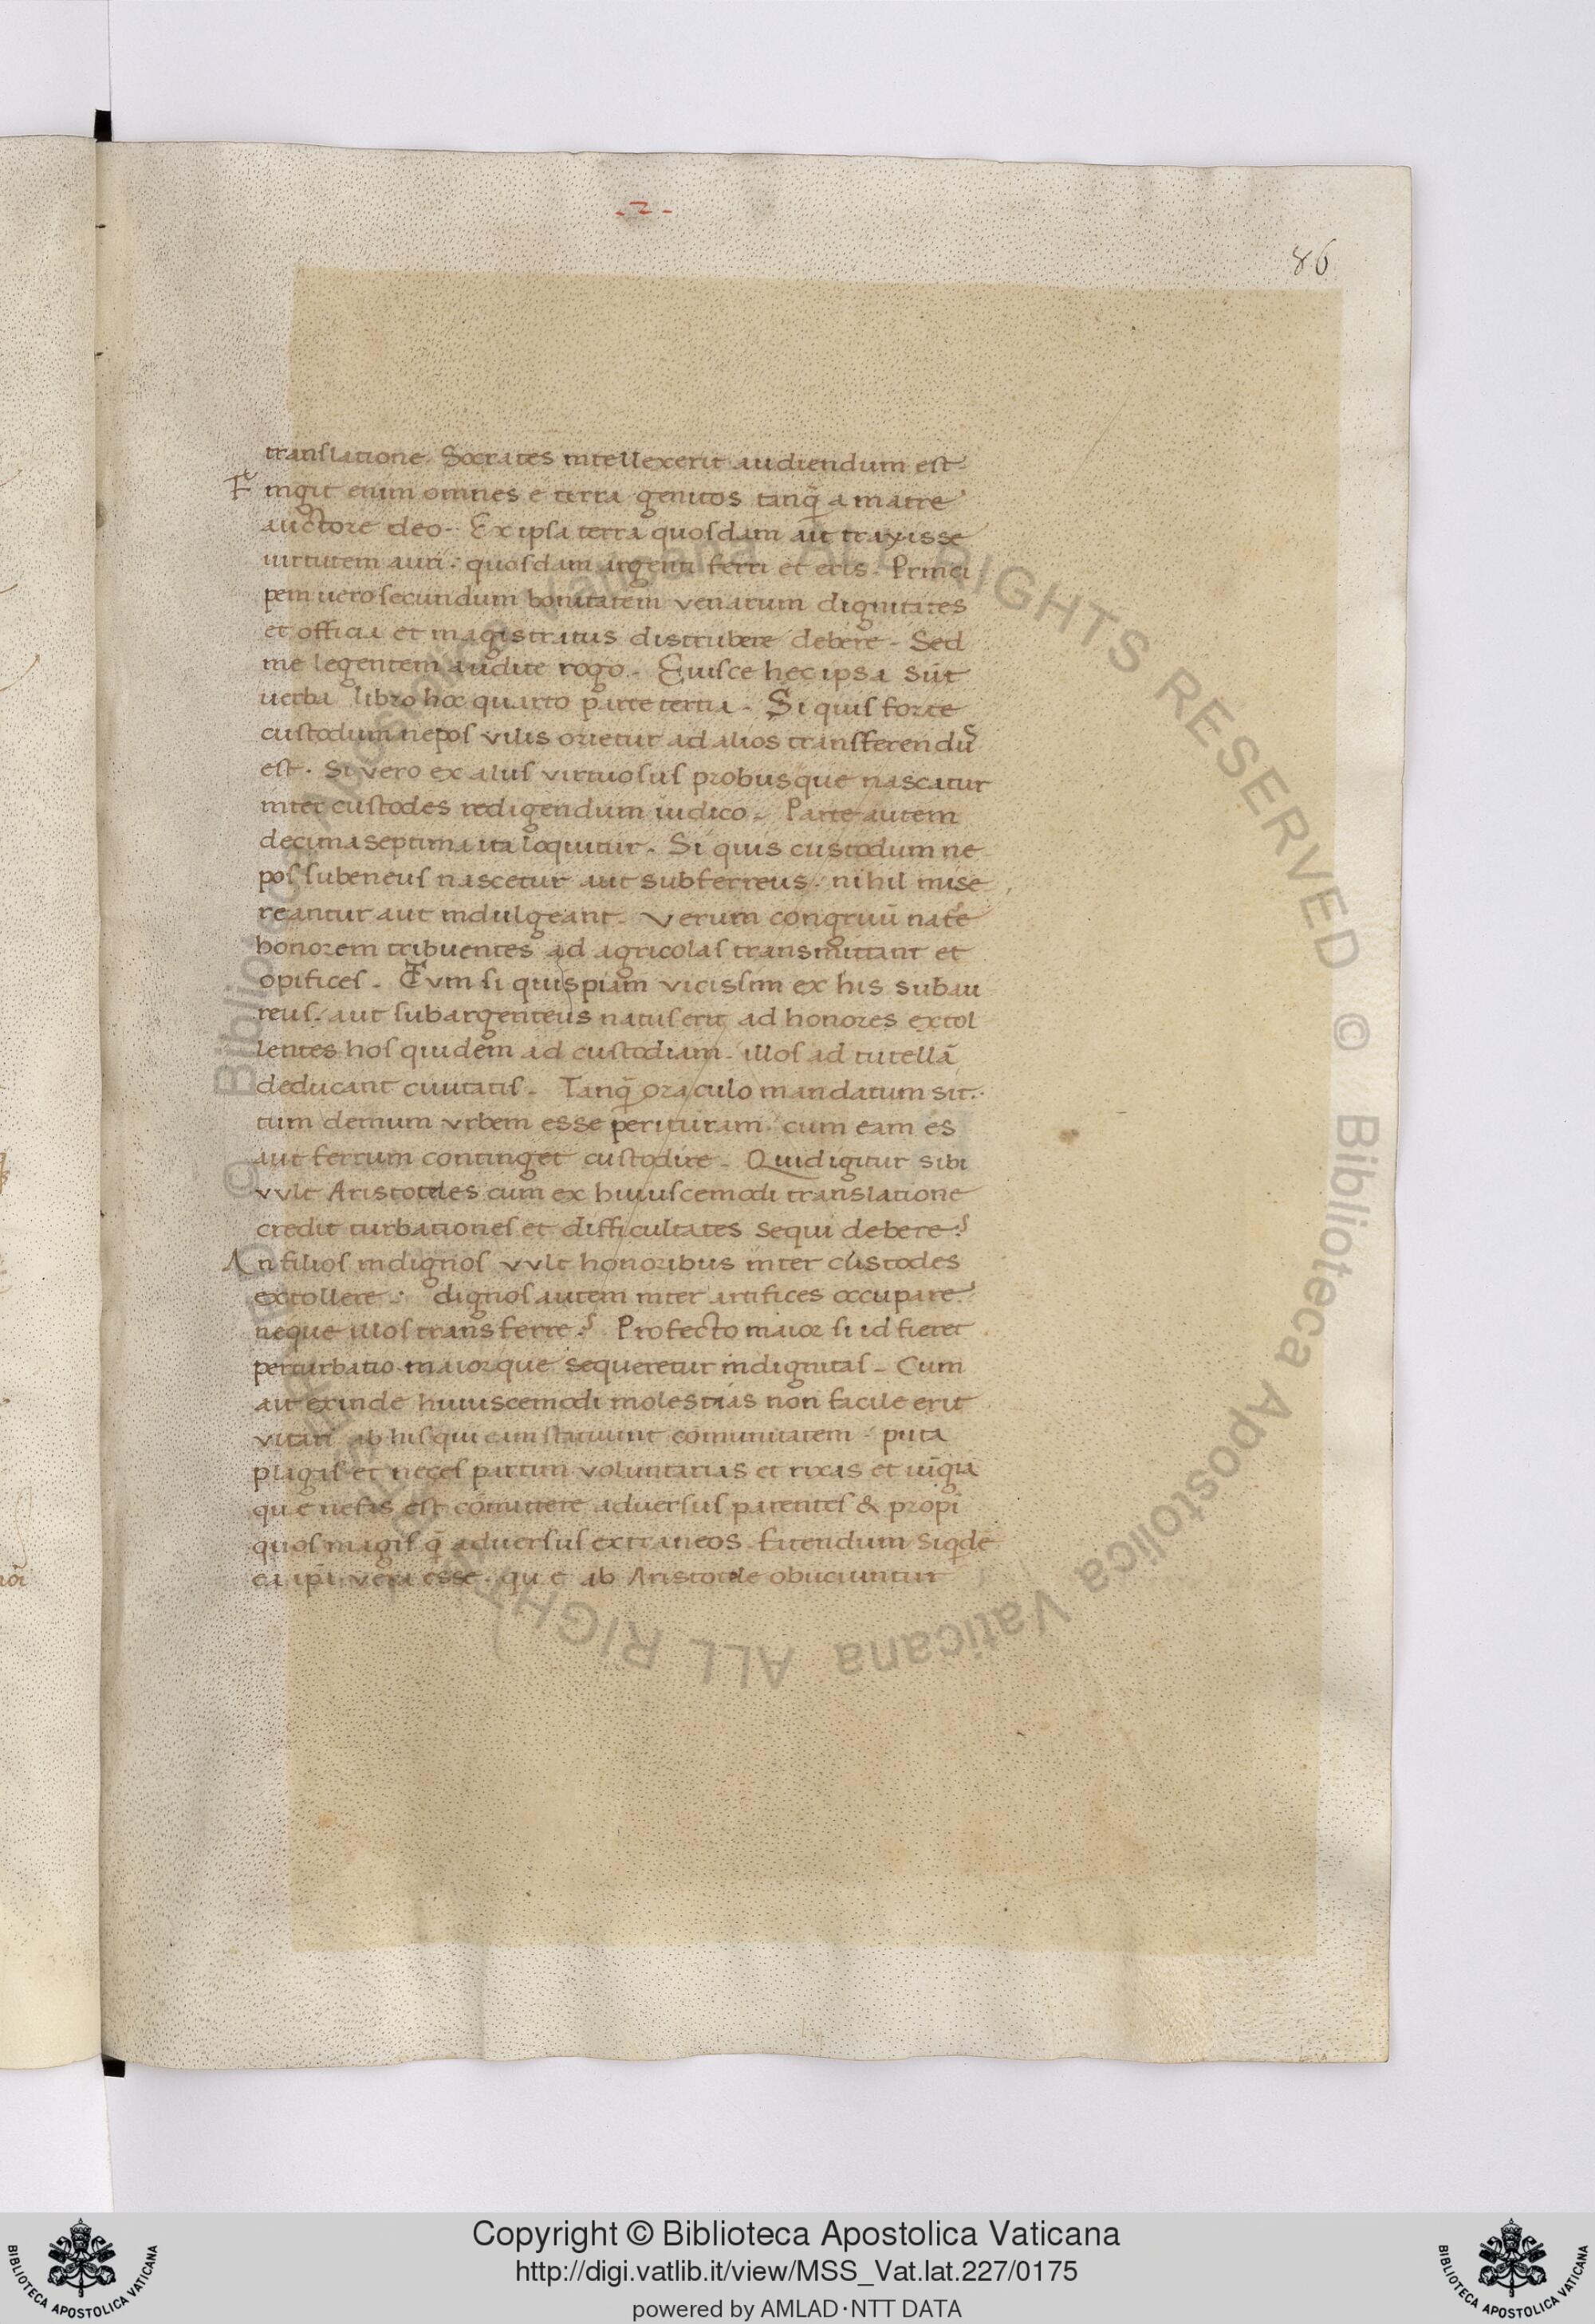 - 2 -
86
translatione Socrates intellexerit audiendum est
Fingit enim omnes e terra genitos tanq̃ a matre
auctore deo. Ex ipsa terra quosdam ait traxisse
uirtutem auri: quosdam argenti ferri et eris. Princi
pem uero secundum bonitatem venarum dignitates
et officia et magistratus distribere debere. Sed
me legentem audite rogo. Eiusce hec ipsa sūt
uerba libro hoc quarto parte tertia. Si quis forte
custodum nepos vilis orietur ad alios transferendū
est. Si vero ex aliis virtuosus probusque nascatur
inter custodes redigendum iudico. Parte autem
decima septima ita loquitur. Si quis custodum ne
pos subeneus nascetur aut subferreus. nihil mise
reantur aut indulgeant. Verum congruū nat̃e
honorem tribuentes ad agricolas transmittant et
opifices. Tum si quispiam vicissim ex his subau
reus. aut subargenteus natus erit, ad honores extol
lentes hos quidem ad custodiam. illos ad tutellā
deducant ciuitatis. Tanq̃ oraculo mandatum sit.
tum demum vrbem esse perituram. cum eam es
aut ferrum continget custodire. Quid igitur sibi
vult Aristoteles cum ex huiuscemodi translatione
credit turbationes et difficultates sequi debere?
An filios indignos vult honoribus inter custodes
extollere: dignos autem inter artifices occupare
neque illos transferre? Profecto maior si id fieret
perturbatio maiorque sequeretur indignitas. Cum
ait exinde huiuscemodi molestias non facile erit
vitari ab his qui eam statuunt comunitatem. puta
plagas et neces partim voluntarias et rixas et iūrgia
que nefas est comittere aduersus parentes & propi
quos magis q̃ aduersus extraneos. fatendum siq̃de
ea ip̄i vera esse. que ab Aristotele obiiciuntur
Copyright © Biblioteca Apostolica Vaticana
http://digi.vatlib.it/view/MSS_Vat.lat.227/0175
powered by AMLAD·NTT DATA